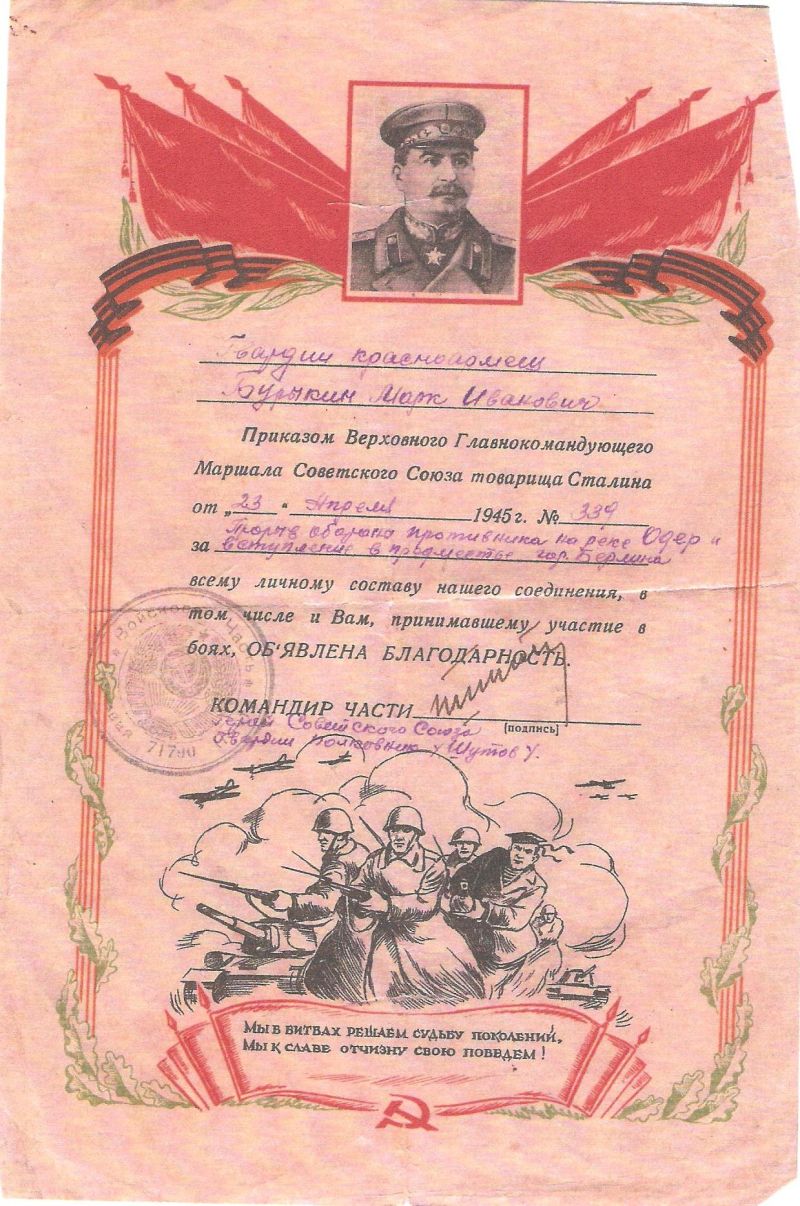 Гвардии красноармеец
Бурыкин Марк Иванович
Приказом Верховного Главнокомандующего
Маршала Советского Союза товарища Сталина
от „23 " Апреля 1945 г. № 339
Прорыв оборона противника на реке Одер и
за вступление в предместье гор. Берлина
всему личному составу нашего соединения, в
том числе и Вам, принимавшему участие в
боях, ОБ'ЯВЛЕНА БЛАГОДАРНОСТЬ.
КОМАНДИР ЧАСТИ
[подпись]
Герой Советского Союза
Гвардии Полковник /Шутов/.
Войсковая Часть
71790
МЫ В БИТВАХ РЕШАЕМ СУДЬБУ ПОКОЛЕНИЙ,
МЫ К СЛАВЕ ОТЧИЗНУ СВОЮ ПОВЕДЕМ!